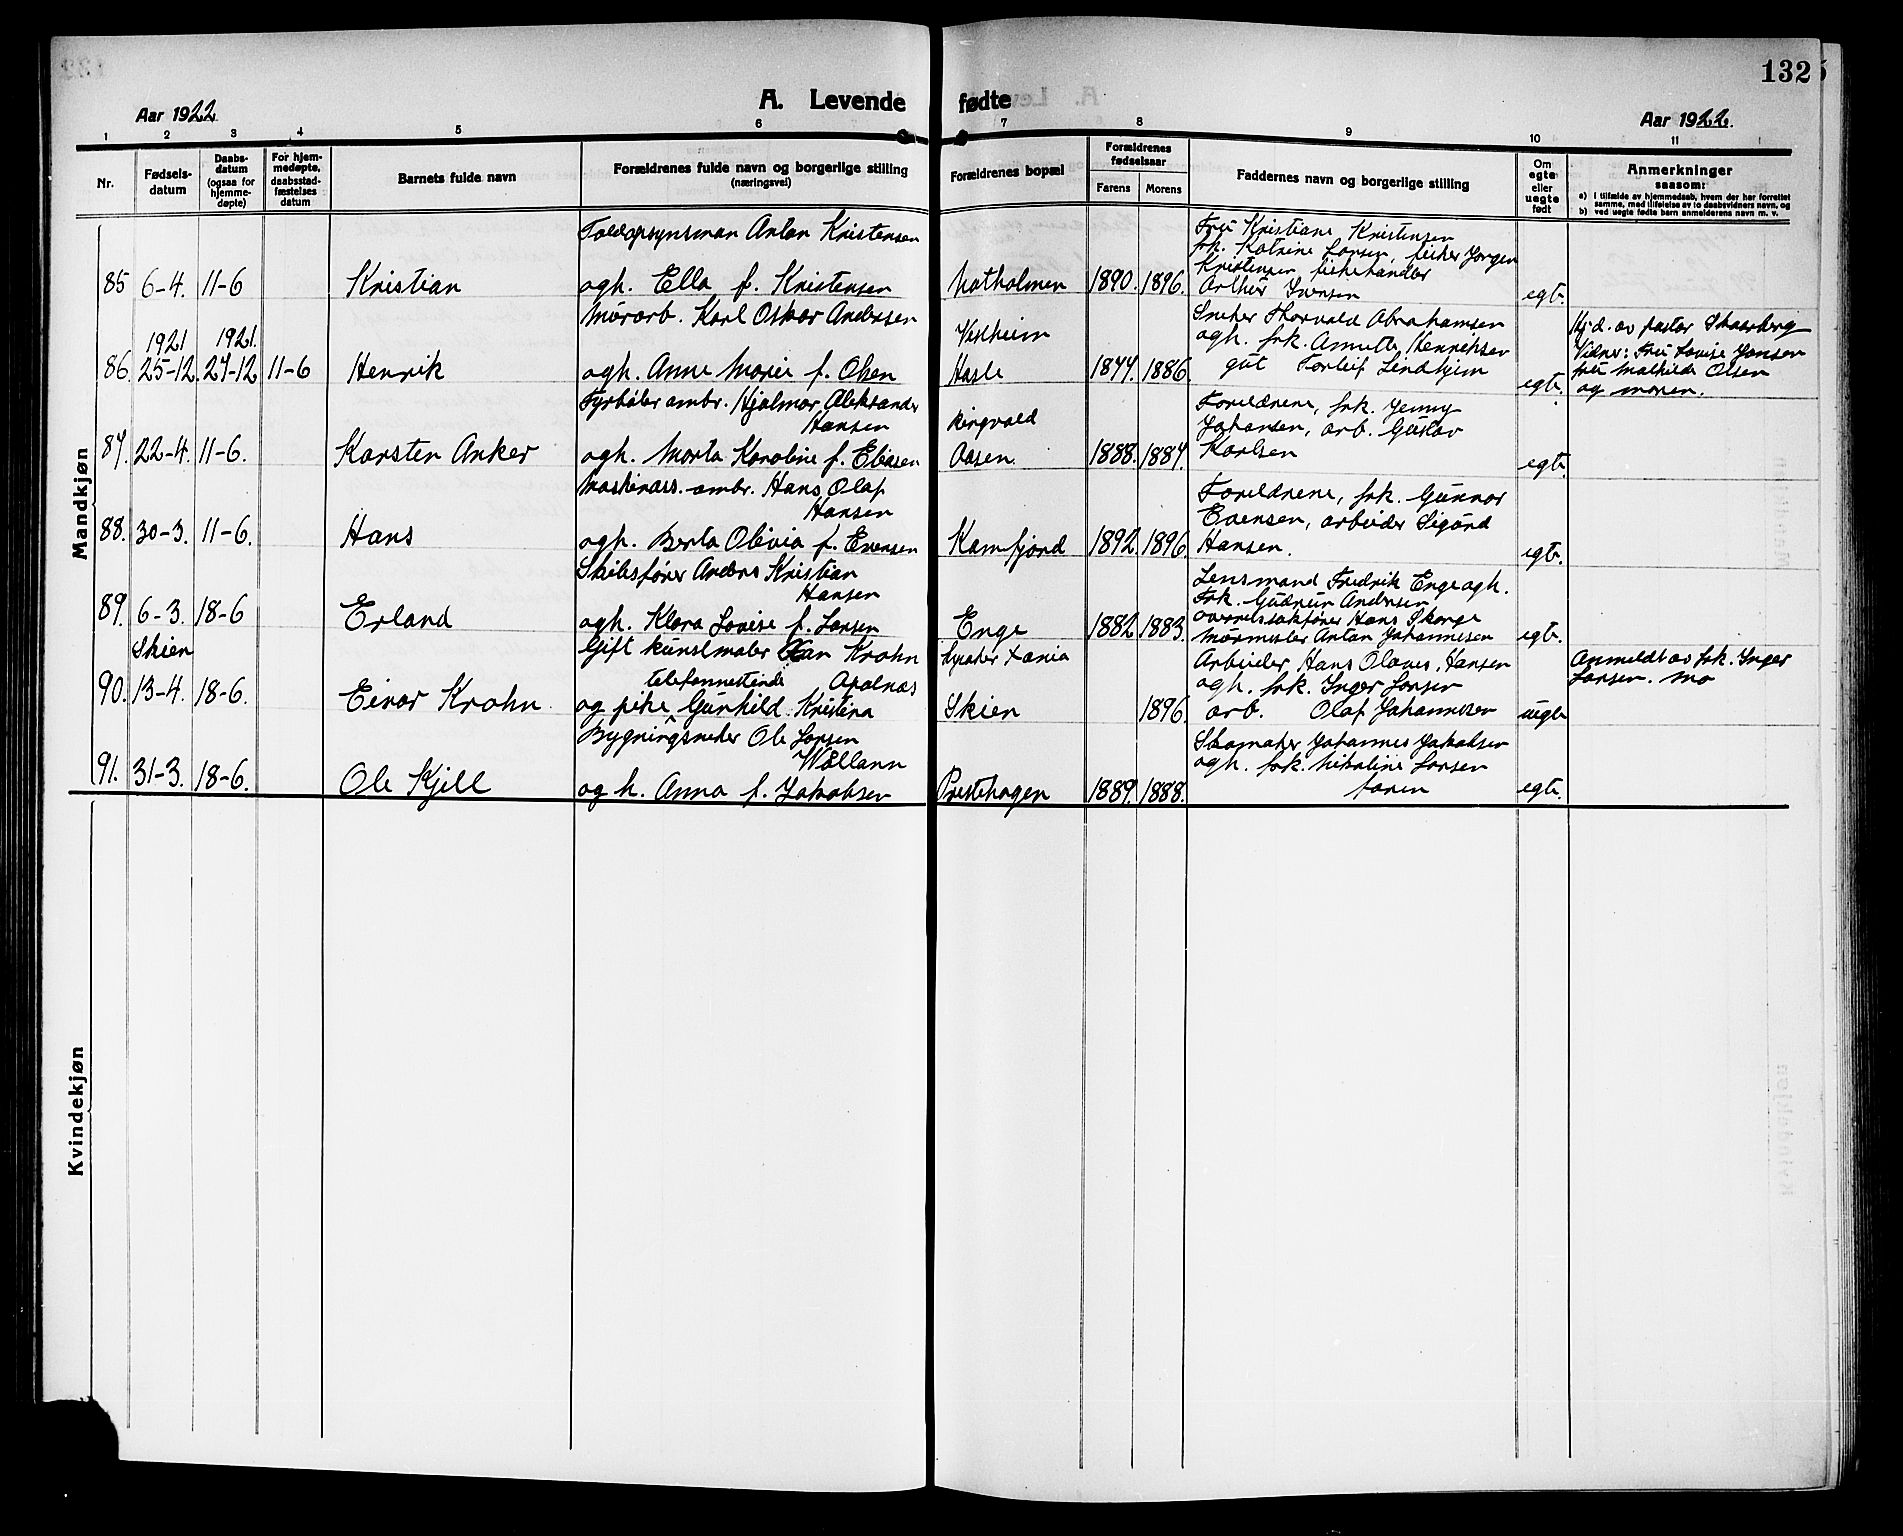 132
A. Levende fødte
Aar 1922.
Aar 1922.
1 2 3 4 5 6 7 8 9 10 11
Nr.
Fødsels-datum
Daabs-datum (ogsaa for hjemme-døpte)
For hjem-medøpte, daabsstad-fæstelses datum
Barnets fulde navn
Forældrenes fulde navn og borgerlige stilling (næringsvei)
Forældrenes bopæl
Forældrenes fødselsaar
Farens Morens
Faddernes navn og borgerlige stilling
Om egte eller uegte født
Anmerkninger saasom:
a) I tilfælde av hjemmedaab, hvem der har forrettet samme, med tilføielse av to daabsvidners navn, og
b) ved uegte fødte barn anmelderens navn m. v.
Mandkjøn
Toldopsynsman Anton Kristensen
85 6-4. 11-6 Kristian
ogh. Ella f. Kristensen
Natholmen 1890. 1896.
Fru Kristiane Kristensen
frk. Katrine Larsen, fisker Jørgen
Kristensen, fiskehandler
Arthur Ivensen
egte.
Murarb. Karl Oskar Andersen
1921 1921.
86. 25-12. 27-12 11-6 Henrik
ogh. Anne Marie f. Olsen
Vestheim
Hasle 1877. 1886.
Snekker Thorvald Abrahamsen
ogh. frk. Annette Henriksen
gut Torleif Lindhjem
egte.
Hj.d. av pastor Skaarberg
Vidner: Fru Lovise Jansen
fru Mathilde Olsen
og moren.
Fyrbøter ambr. Hjalmar Aleksander
Hansen
87. 22-4. 11-6. Karsten Anker
ogh. Marta Karoline f. Eliasen
Ringvald
Aasen. 1888. 1887.
Forældrene, frk. Jenny
Johansen, arb. Gustav
Karlsen
egte
Maskinass. ambr. Hans Olaf
Hansen
88. 30-3. 11-6. Hans
ogh. Berta Olivia f. Evensen
Kamfjord 1892. 1896.
Forældrene, frk. Gunnar
Evensen, arbeider Sigurd
Hansen.
egte.
Skibsfører Anders Kristian
Hansen
89. 6-3. 18-6 Erland
ogh. Klara Lovise f. Larsen
Enge 1882. 1883.
Lensmand Fredrik Enge ogh.
Frk. Gudrun Andersen
overretssakfører Hans Skorge
Murmester Anton Johannesen
egte.
Skien
Gift kunstmaler Xan Krohn
Lysaker Xania
90. 13-4. 18-6. Einar Krohn.
telefonnettinde Apalnæs
og pike Gunhild Kristina
Skien 1896.
Arbeider Hans Olaves Hansen
ogh. frk. Inger Larsen
arb. Olaf Johannesen
uegte
Anmeldt av frk. Inger
Larsen. Mo
Bygningssneker Ole Larsen
Wøllann
91. 31-3. 18-6. Ole Kjell
og h. Anna f. Jakobsen
Prestehagen 1889. 1888.
Skomaker Johannes Jakobsen
ogh. frk. Nikoline Larsen
faren
egte.
Kvindekjøn